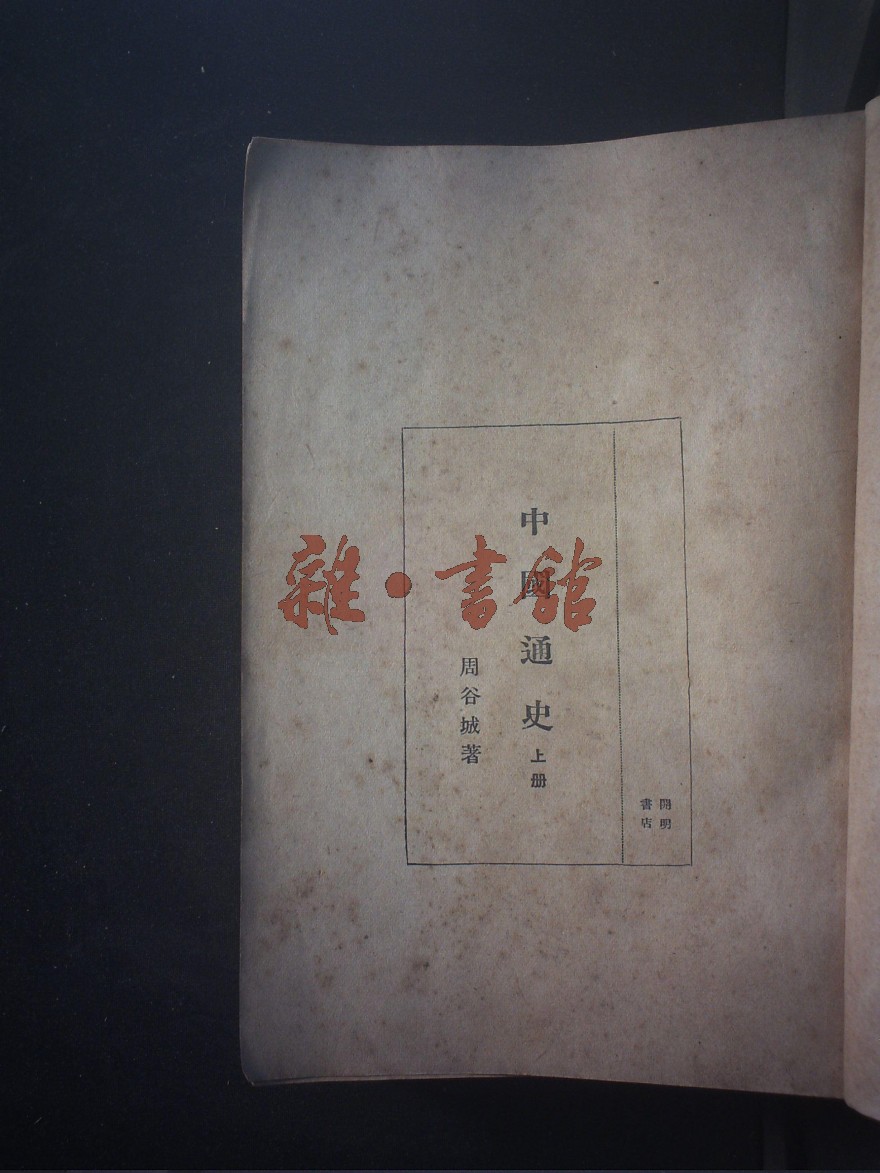 開明
書店
中國通史 上册
周谷城著
雜·書館